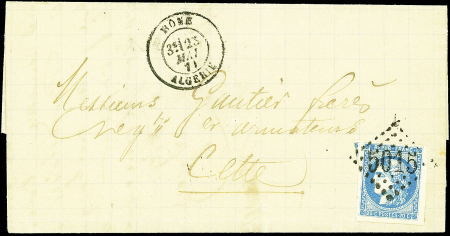 BONE
3E 23
MAI
71
ALGERIE
Messieurs Gautier frères
negts et armateurs
Cette
5015